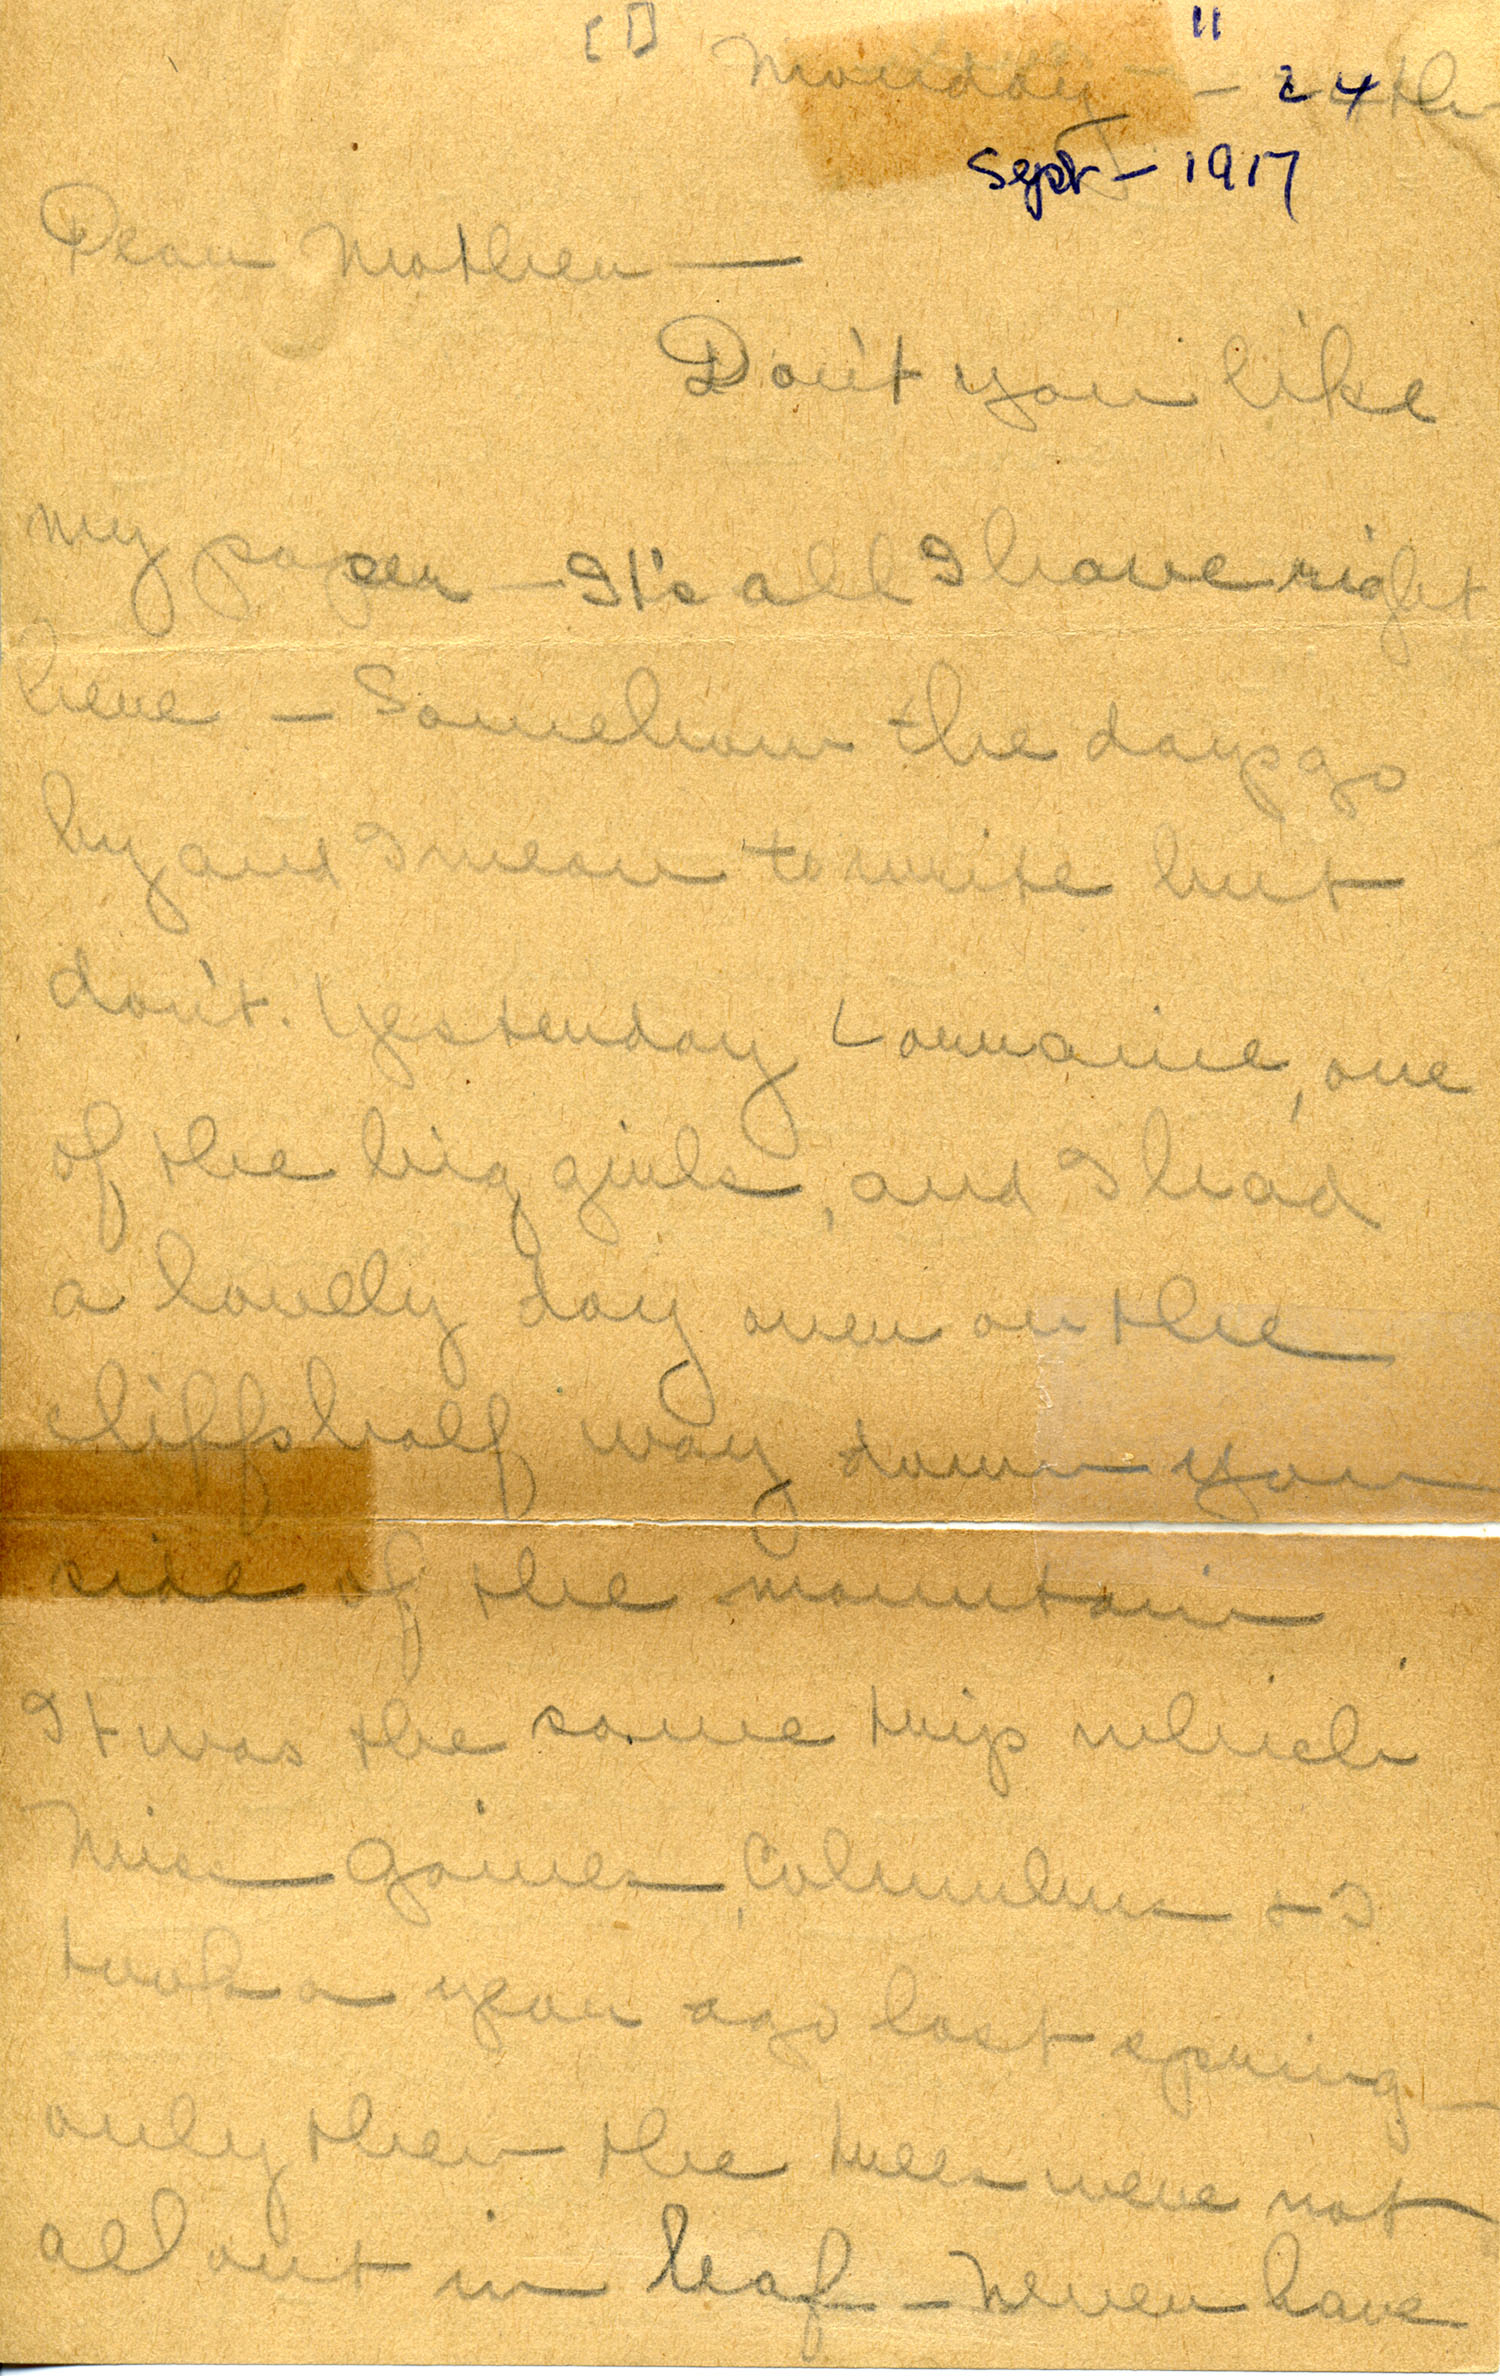 [ ] "
Monday - 24th
Sept - 1917
Dear Mother —
Don't you like
my paper - It's all I have right
here - Somehow the days go
by and I mean to write but
don't. Yesterday Lorraine, one
of the big girls, and I had
a lovely day over on the
cliffs half way down your
side of the mountain
It was the same trip which
Miss Gaines, Columbus + I
took a year ago last spring -
only then the trees were not
all out in leaf - Never have